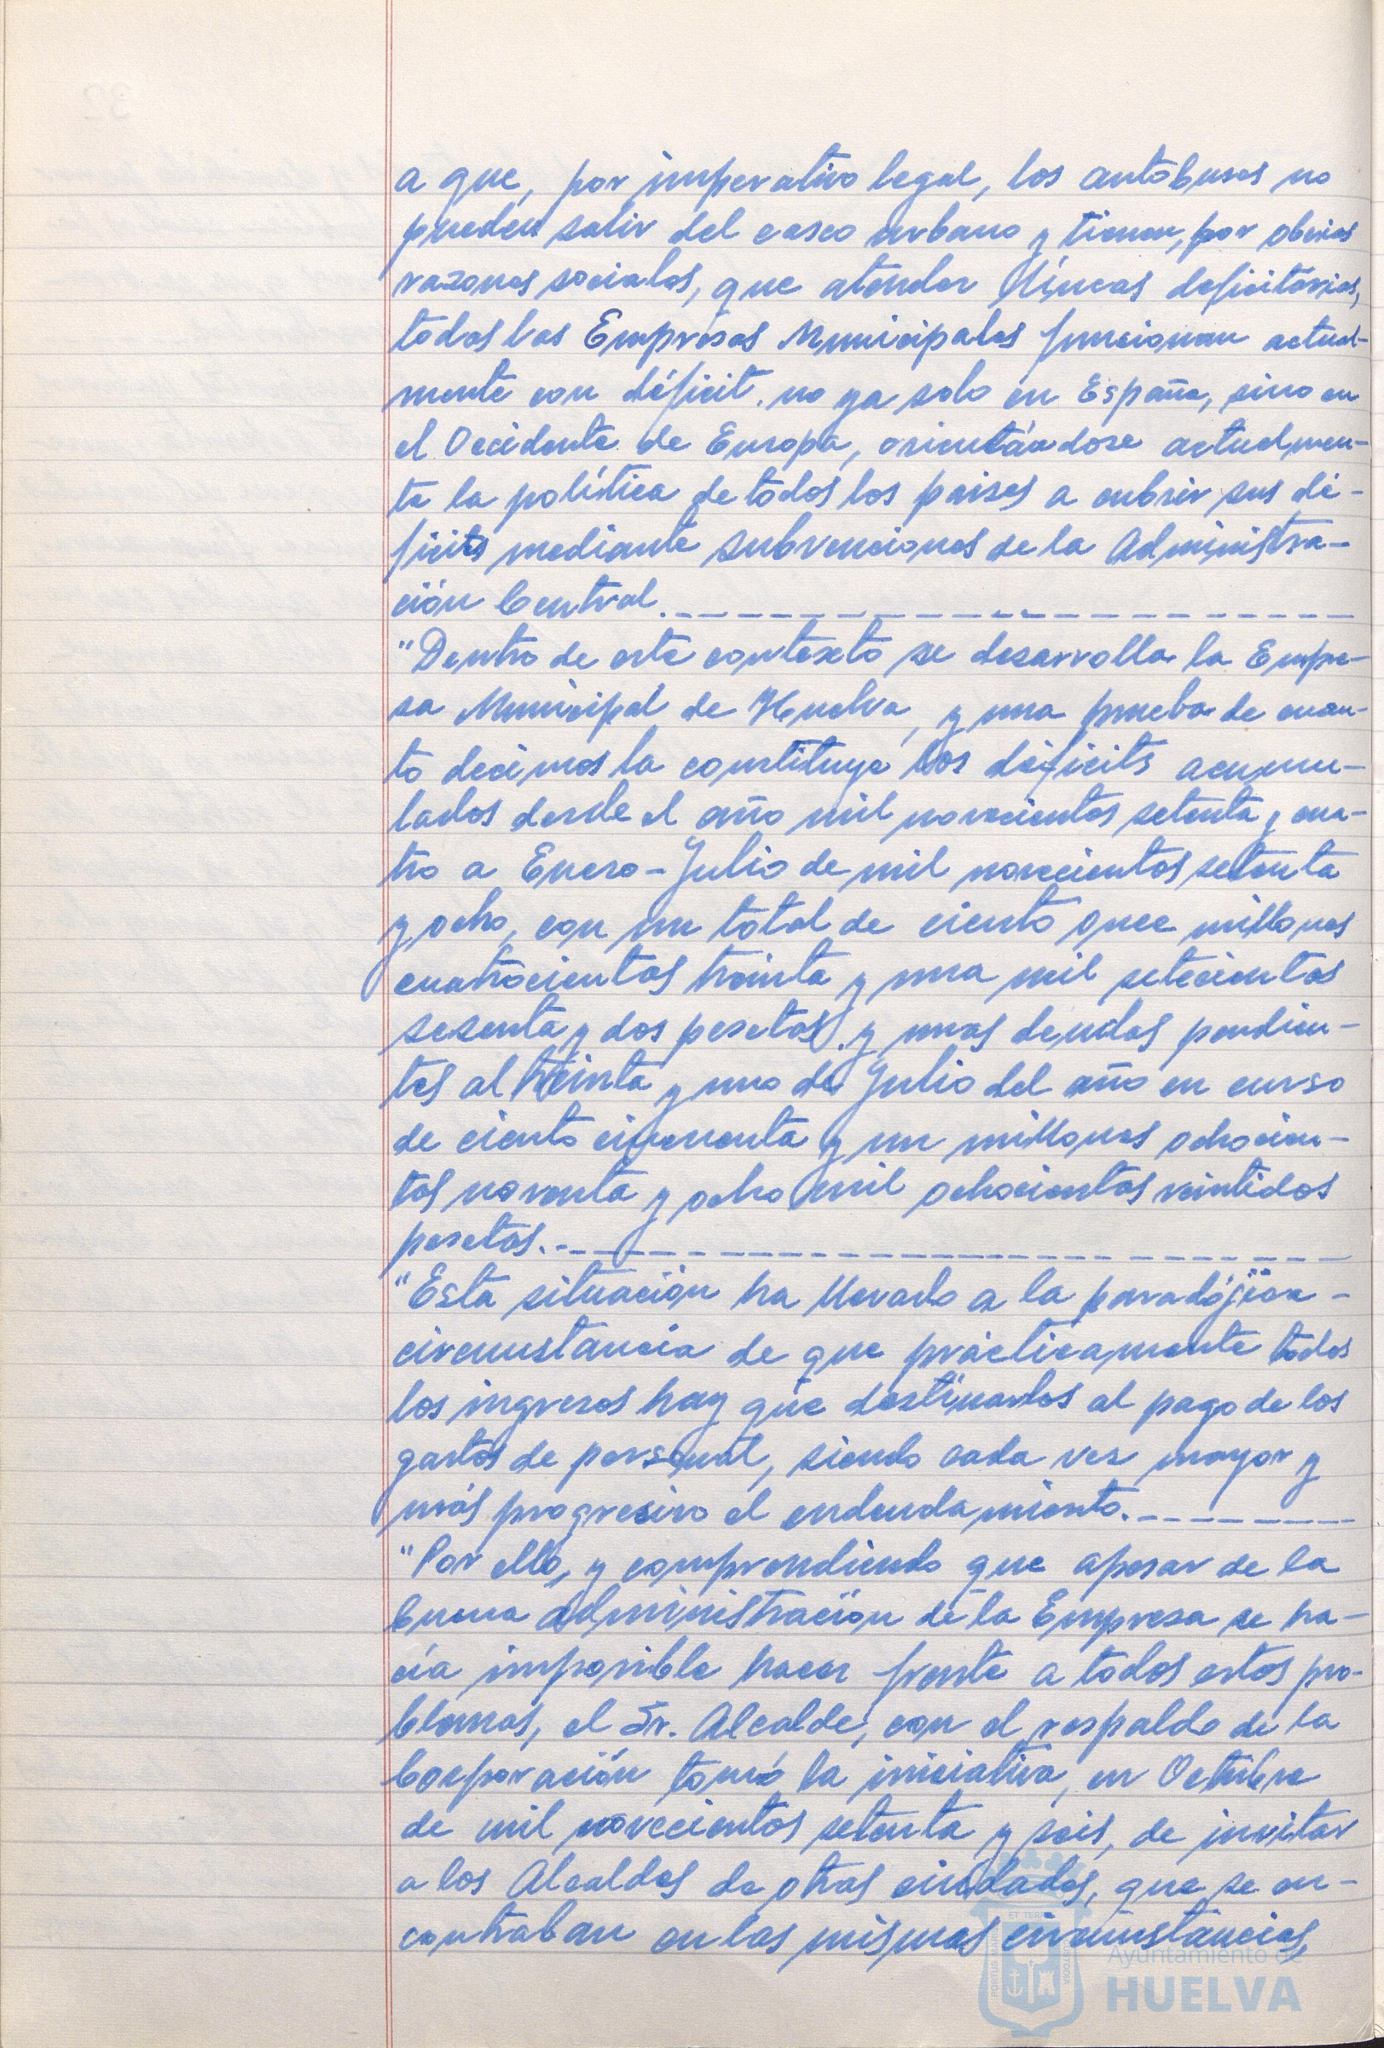 a que, por imperativo legal, los autobuses no
pueden salir del casco urbano y tienen, por obvias
razones sociales, que atender líneas deficitarias,
todas las Empresas Municipales funcionan actual-
mente con déficit. no ya solo en España, sino en
el Occidente de Europa, orientándose actualmen-
te la política de todos los paises a cubrir sus dé-
ficits mediante subvenciones de la Administra-
ción Central.
"Dentro de este contexto se desarrolla la Empre-
sa Municipal de Huelva, y una prueba de cuan-
to decimos la constituye los déficits acumu-
lados desde el año mil novecientos setenta y cua-
tro a Enero-Julio de mil novecientos setenta
y ocho, con un total de ciento once millones
cuatrocientas treinta y una mil setecientas
sesenta y dos pesetas. y unas deudas pendien-
tes al treinta y uno de Julio del año en curso
de ciento cincuenta y un millones ochocien-
tas noventa y ocho mil ochocientas veintidos
pesetas.
"Esta situación ha llevado a la paradójica
circunstancia de que prácticamente todos
los ingresos hay que destinarlos al pago de los
gastos de personal, siendo cada vez mayor y
más progresivo el endeudamiento.
"Por ello, y comprendiendo que apesar de la
buena administración de la Empresa se ha-
cía imposible hacer frente a todos estos pro-
blemas, el Sr. Alcalde, con el respaldo de la
Corporación tomó la iniciativa, en Octubre
de mil novecientos setenta y seis, de invitar
a los Alcaldes de otras ciudades, que se en-
contraban en las mismas circunstancias,
Ayuntamiento de
HUELVA